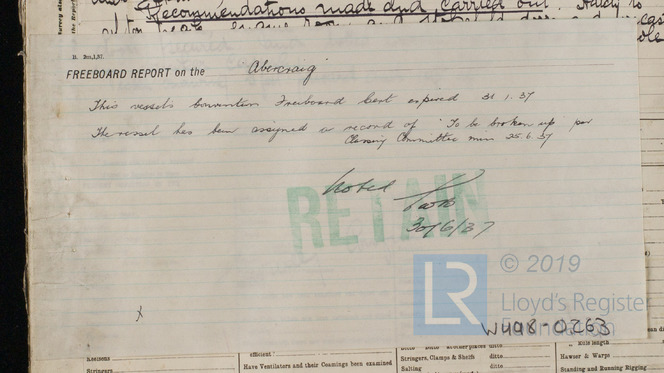 Recommendations made and carried out.
FREEBOARD REPORT on the Abercraig
This vessels Convention Freeboard Cert expired 31.1.37
The vessel has been assigned a record of "To be broken up" per
Classing Committee min 25.6.37
RETAIN
Noted
30/6/37
LR
© 2019
Lloyd's Register
Foundation
W498-0263
x
Keelsons
Stringers
efficient
Have Ventilators and their Coamings been examined
ditto
Stringers, Clamps & Shelfs ditto
Salting ditto
Rule length
Hawser & Warps
Standing and Running Rigging